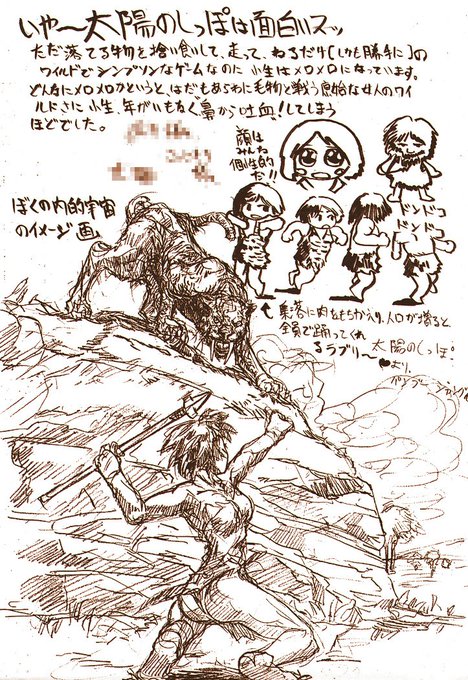 いや〜太陽のしっぽは面白いスッ
ただ落てる物を拾い食いして、走って、ねるだけ(しかも勝手に)の
ワイルドでシンプソンなゲームなのに 小生はメロメロになっています。
どんなにメロメロかというと、はだもあらわに毛物と戦う原始な女人のワイ
ルドさに小生、年がいもなく鼻から吐血!してしまう
ほどでした。
顔は
みんな
個性的
だ!!
ドンドコ
ドンドコ
ぼくの内的宇宙
のイメージ画
集落に肉をもちかえり、人口が増ると
全員で踊ってくれ
るラブリ〜
太陽のしっぽ。
より。